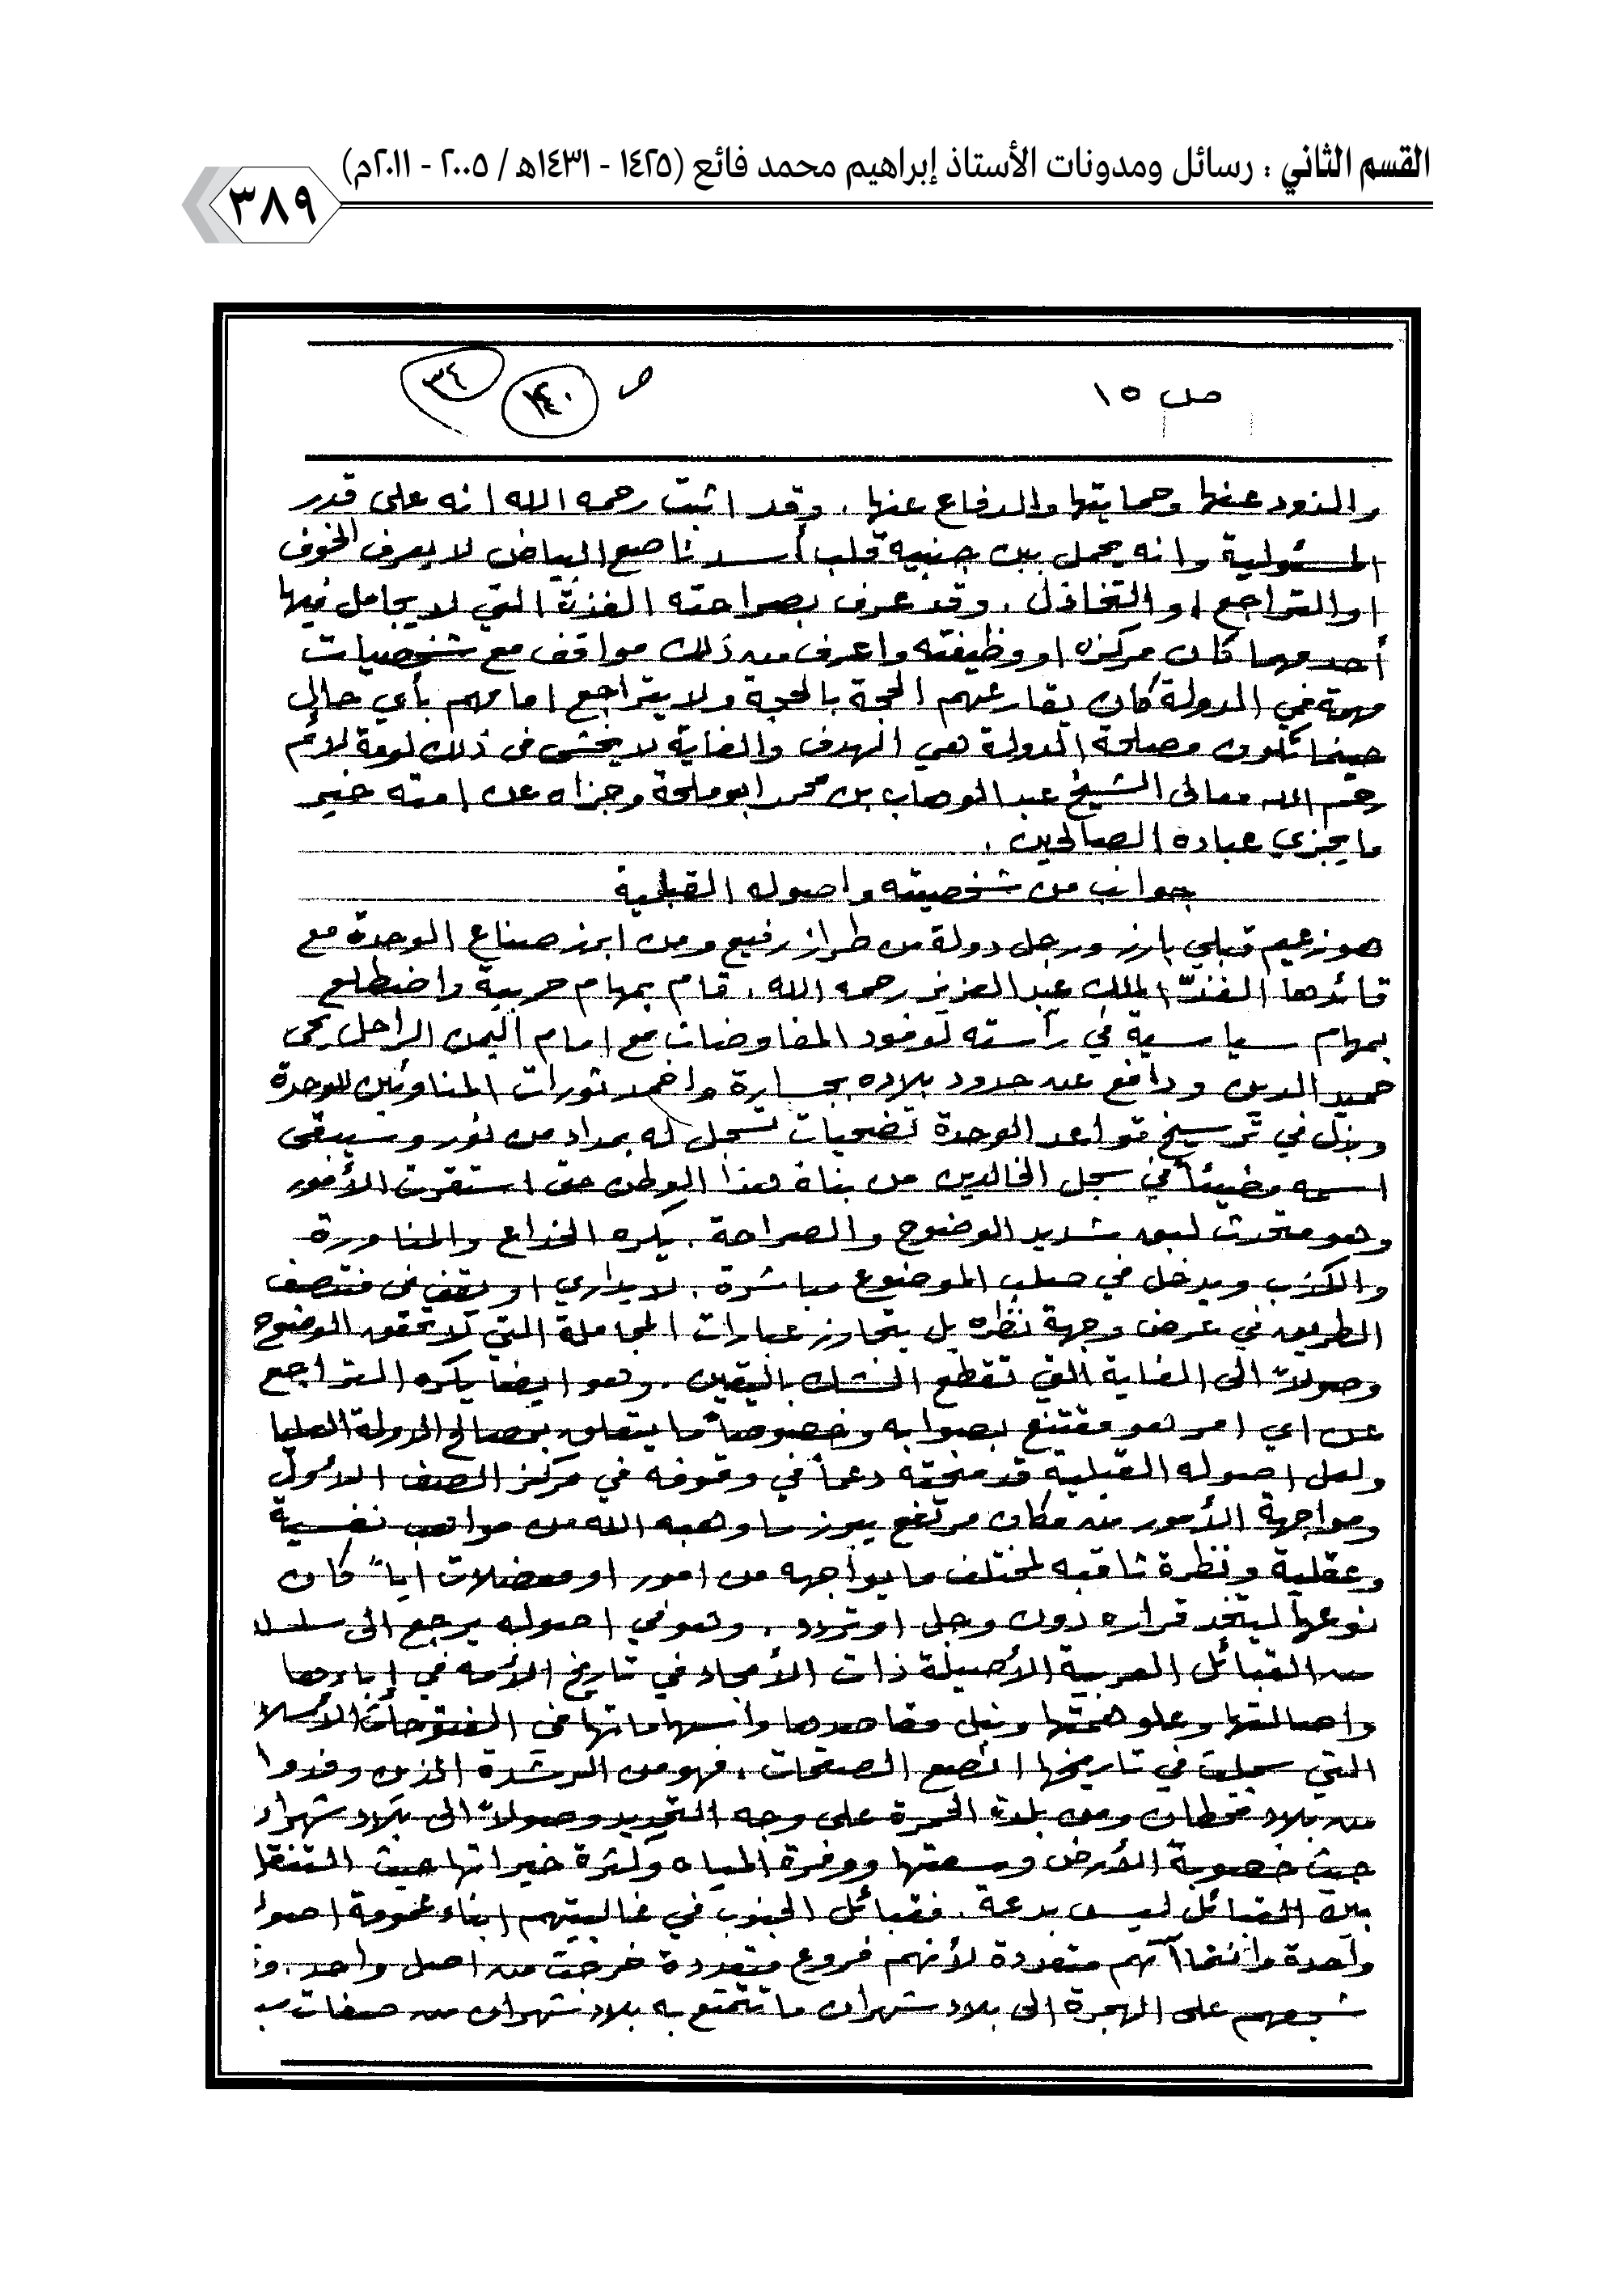 القسم الثاني : رسائل ومدونات الأستاذ إبراهيم محمد فائع (١٤٢٥ - ١٤٣١هـ / ٢٠٠٥ - ٢٠١١م)
٣٨٩
ص ١٥
ص ٣٤
والذود عنها وحمايتها والدفاع عنها . وقد اثبت رحمه الله انه على قدر
المسئولية وانه يحمل بين جنبيه قلب أسد ناصع البياض لا يعرف الخوف
او التراجع او التخاذل . وقد عرف بصراحته الفذة التي لا يجامل فيها
أحد مهما كان مركزه او وظيفته واعرف من ذلك مواقف مع شخصيات
مهمة في الدولة كان يقارعهم الحجة بالحجة ولا يتراجع امامهم بأي حال
حينما تكون مصلحة الدولة هي الهدف والغاية لا يخشى في ذلك لومة لائم
رحم الله معالى الشيخ عبد الوهاب بن محمد ابو ملحة وجزاه عن امته خير
ما يجزي عباده الصالحين .
جوانب من شخصيته واصوله القبلية
هو زعيم قبلي بارز ورجل دولة من طراز رفيع ومن ابرز صناع الوحدة مع
قائدها الفذّ الملك عبد العزيز رحمه الله . قام بمهام حربية واضطلع
بمهام سياسية في رآسته لوفود المفاوضات مع امام اليمن الراحل يحى
حميد الدين ودافع عن حدود بلاده بجسارة واخمد ثورات المناوئين للوحدة
وبذل في ترسيخ قواعد الوحدة تضحيات تسجل له بمداد من نور وسيبقى
اسمه مضيئاً في سجل الخالدين من بناة هذا الوطن حتى استقرت الأمور
وهو متحدث لبق شديد الوضوح والصراحة . يكره الخداع والمناورة
والكذب ويدخل في صلب الموضوع مباشرة . لا يداري او يقف في منتصف
الطريق في عرض وجهة نظره بل يتجاوز عبارات المجاملة التي لا تحقق الوضوح
وصولاً الى الغاية التي تقطع الشك باليقين . وهو ايضا يكره التراجع
عن اي امر هو مقتنع بصوابه وخصوصاً ما يتعلق بمصالح الدولة العليا
ولعل اصوله القبلية قد منحته دعماً في وقوفه في مركز الصف الأول
ومواجهة الأمور من مكان مرتفع يبرز ما وهبه الله من مواهب نفسية
وعقلية ونظرة ثاقبه لمختلف ما يواجهه من امور او معضلات اياً كان
نوعها ليتخذ قراره دون وجل او تردد . وهو في اصوله يرجع الى
من القبائل العربية الأصيلة ذات الأمجاد في تاريخ الأمه في اباءها
واصالتها وعلو همتها ونبل مقاصدها واسهاماتها في الفتوحات
التي سجلت في تاريخها انصع الصفحات . فهو من الرشدة الذين وفدوا
من بلاد قحطان ومن بلدة الحمرة على وجه التحديد وصولاً الى بلاد
حيث خصوبة الأرض وسعتها ووفرة المياه وكثرة خيراتها حيث
بين القبائل ليس بدعة . فقبائل الجنوب في غالبيتهم ابناء عمومة
واحدة وانتماآتهم متعددة لأنهم فروع متعددة خرجت من اصل واحد .
شجعهم على الهجرة الى بلاد شهران ما تتمتع به بلاد شهران من صفات